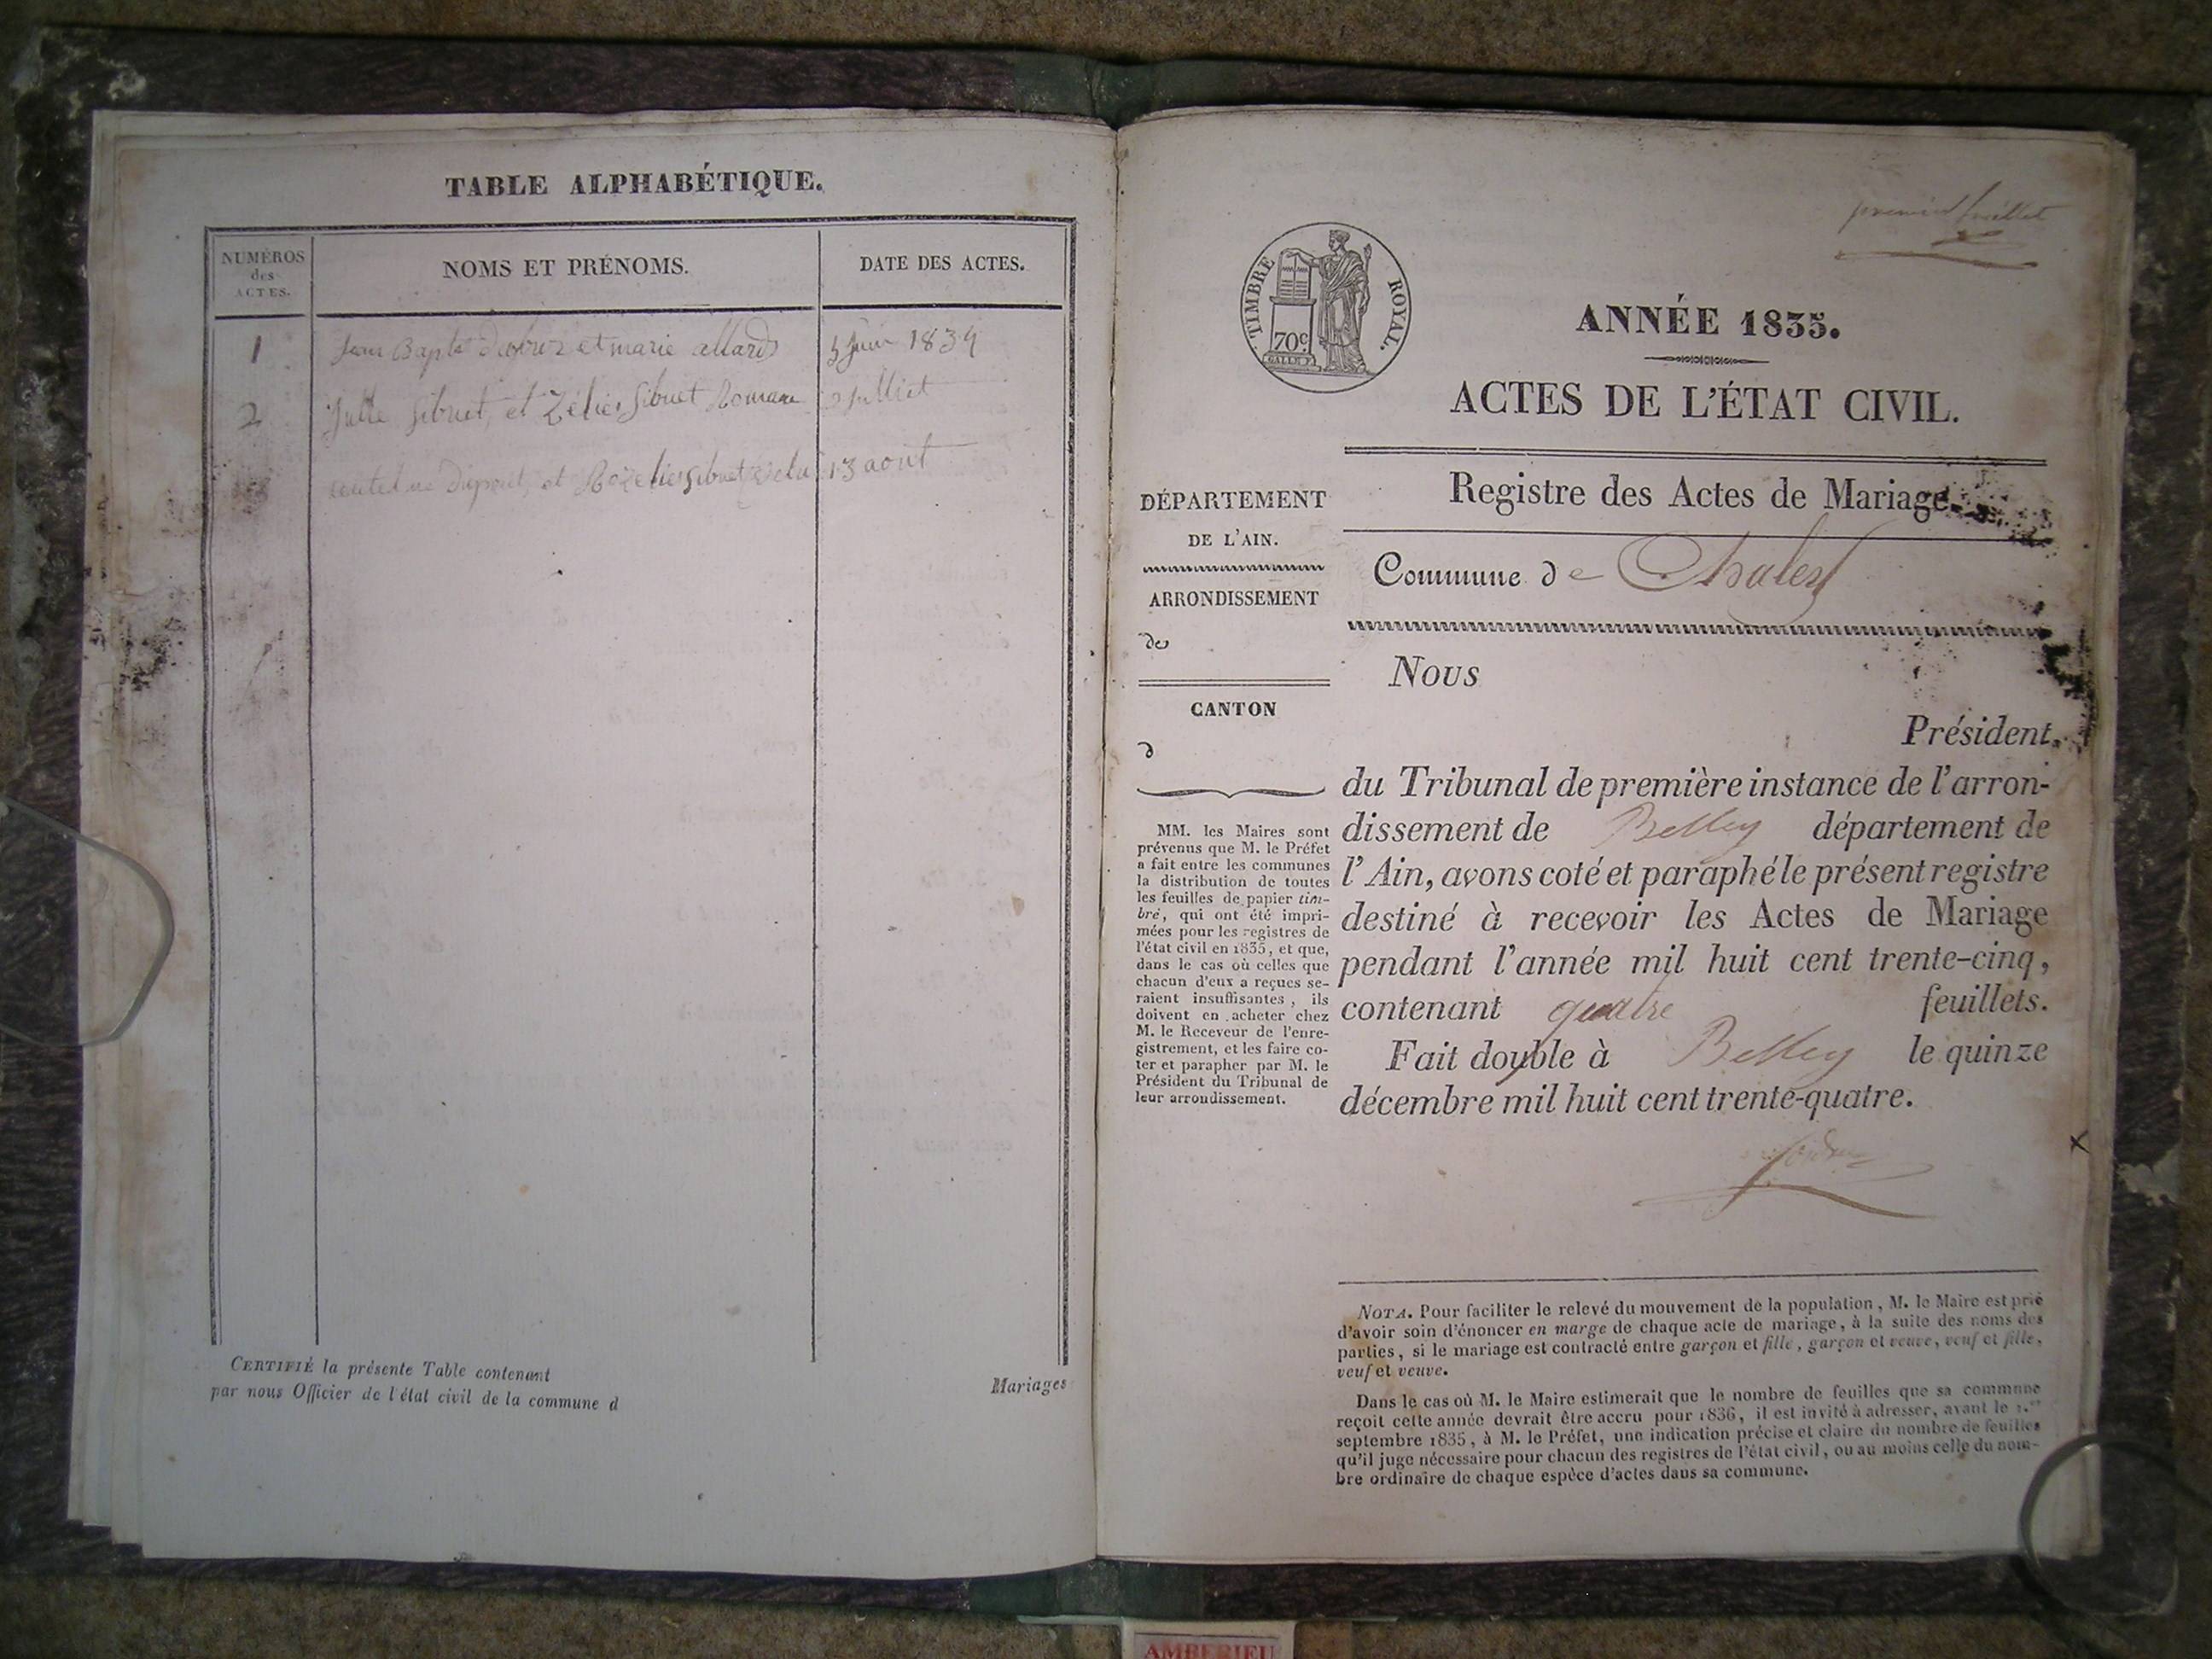 TABLE ALPHABÉTIQUE.
NUMÉROS
des
ACTES.
NOMS ET PRÉNOMS.
DATE DES ACTES.
1 Jean Bapte et marie allard 5 Juin 1834
2 Sibuet, et Zélie Sibuet
et Sibuet 13 aout
CERTIFIÉ la présente Table contenant
par nous Officier de l'état civil de la commune d
Mariages
premier feuillet
TIMBRE ROYAL.
70c
ANNÉE 1835.
ACTES DE L'ÉTAT CIVIL.
Registre des Actes de Mariage.
Commune de Chaley
DÉPARTEMENT
DE L'AIN.
ARRONDISSEMENT
de
CANTON
d
MM. les Maires sont
prévenus que M. le Préfet
a fait entre les communes
la distribution de toutes
les feuilles de papier tim-
bré, qui ont été impri-
mées pour les registres de
l'état civil en 1835, et que,
dans le cas où celles que
chacun d'eux a reçues se-
raient insuffisantes, ils
doivent en acheter chez
M. le Receveur de l'enre-
gistrement, et les faire co-
ter et parapher par M. le
Président du Tribunal de
leur arrondissement.
Nous
Président
du Tribunal de première instance de l'arron-
dissement de Belley département de
l'Ain, avons coté et paraphé le présent registre
destiné à recevoir les Actes de Mariage
pendant l'année mil huit cent trente-cinq,
contenant quatre feuillets.
Fait double à Belley le quinze
décembre mil huit cent trente-quatre.
NOTA. Pour faciliter le relevé du mouvement de la population, M. le Maire est prié
d'avoir soin d'énoncer en marge de chaque acte de mariage, à la suite des noms des
parties, si le mariage est contracté entre garçon et fille, garçon et veuve, veuf et fille,
veuf et veuve.
Dans le cas où M. le Maire estimerait que le nombre de feuilles que sa commune
reçoit cette année devrait être accru pour 1836, il est invité à adresser, avant le 1.er
septembre 1835, à M. le Préfet, une indication précise et claire du nombre de feuilles
qu'il juge nécessaire pour chacun des registres de l'état civil, ou au moins celle du nom-
bre ordinaire de chaque espèce d'actes dans sa commune.
AMBERIEU